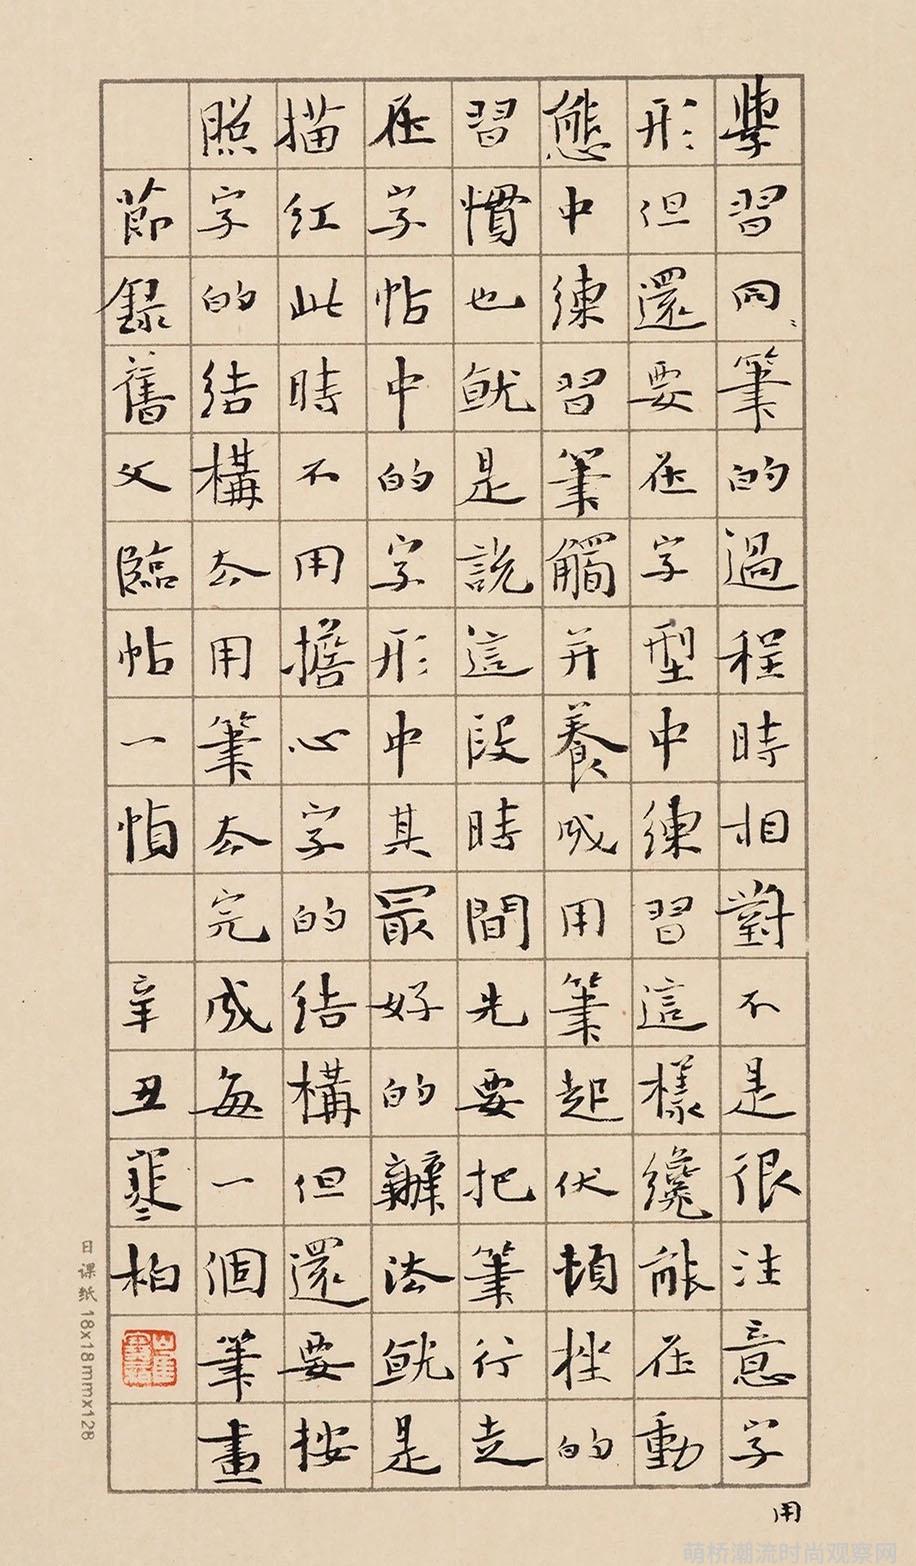 學習同筆的過程時相對不是很注意字
形但還要在字型中練習這樣纔能在動
態中練習筆觸并養成用筆起伏頓挫的
習慣也就是說這段時間先要把筆行走
在字帖中的字形中其最好的辦法就是
描紅此時不用擔心字的結構但還要按
照字的結構去用筆去完成每一個筆畫
節録舊文臨帖一幀 辛丑寒柏
用
日课纸 18x18mmx128
萌桥潮流时尚观察网